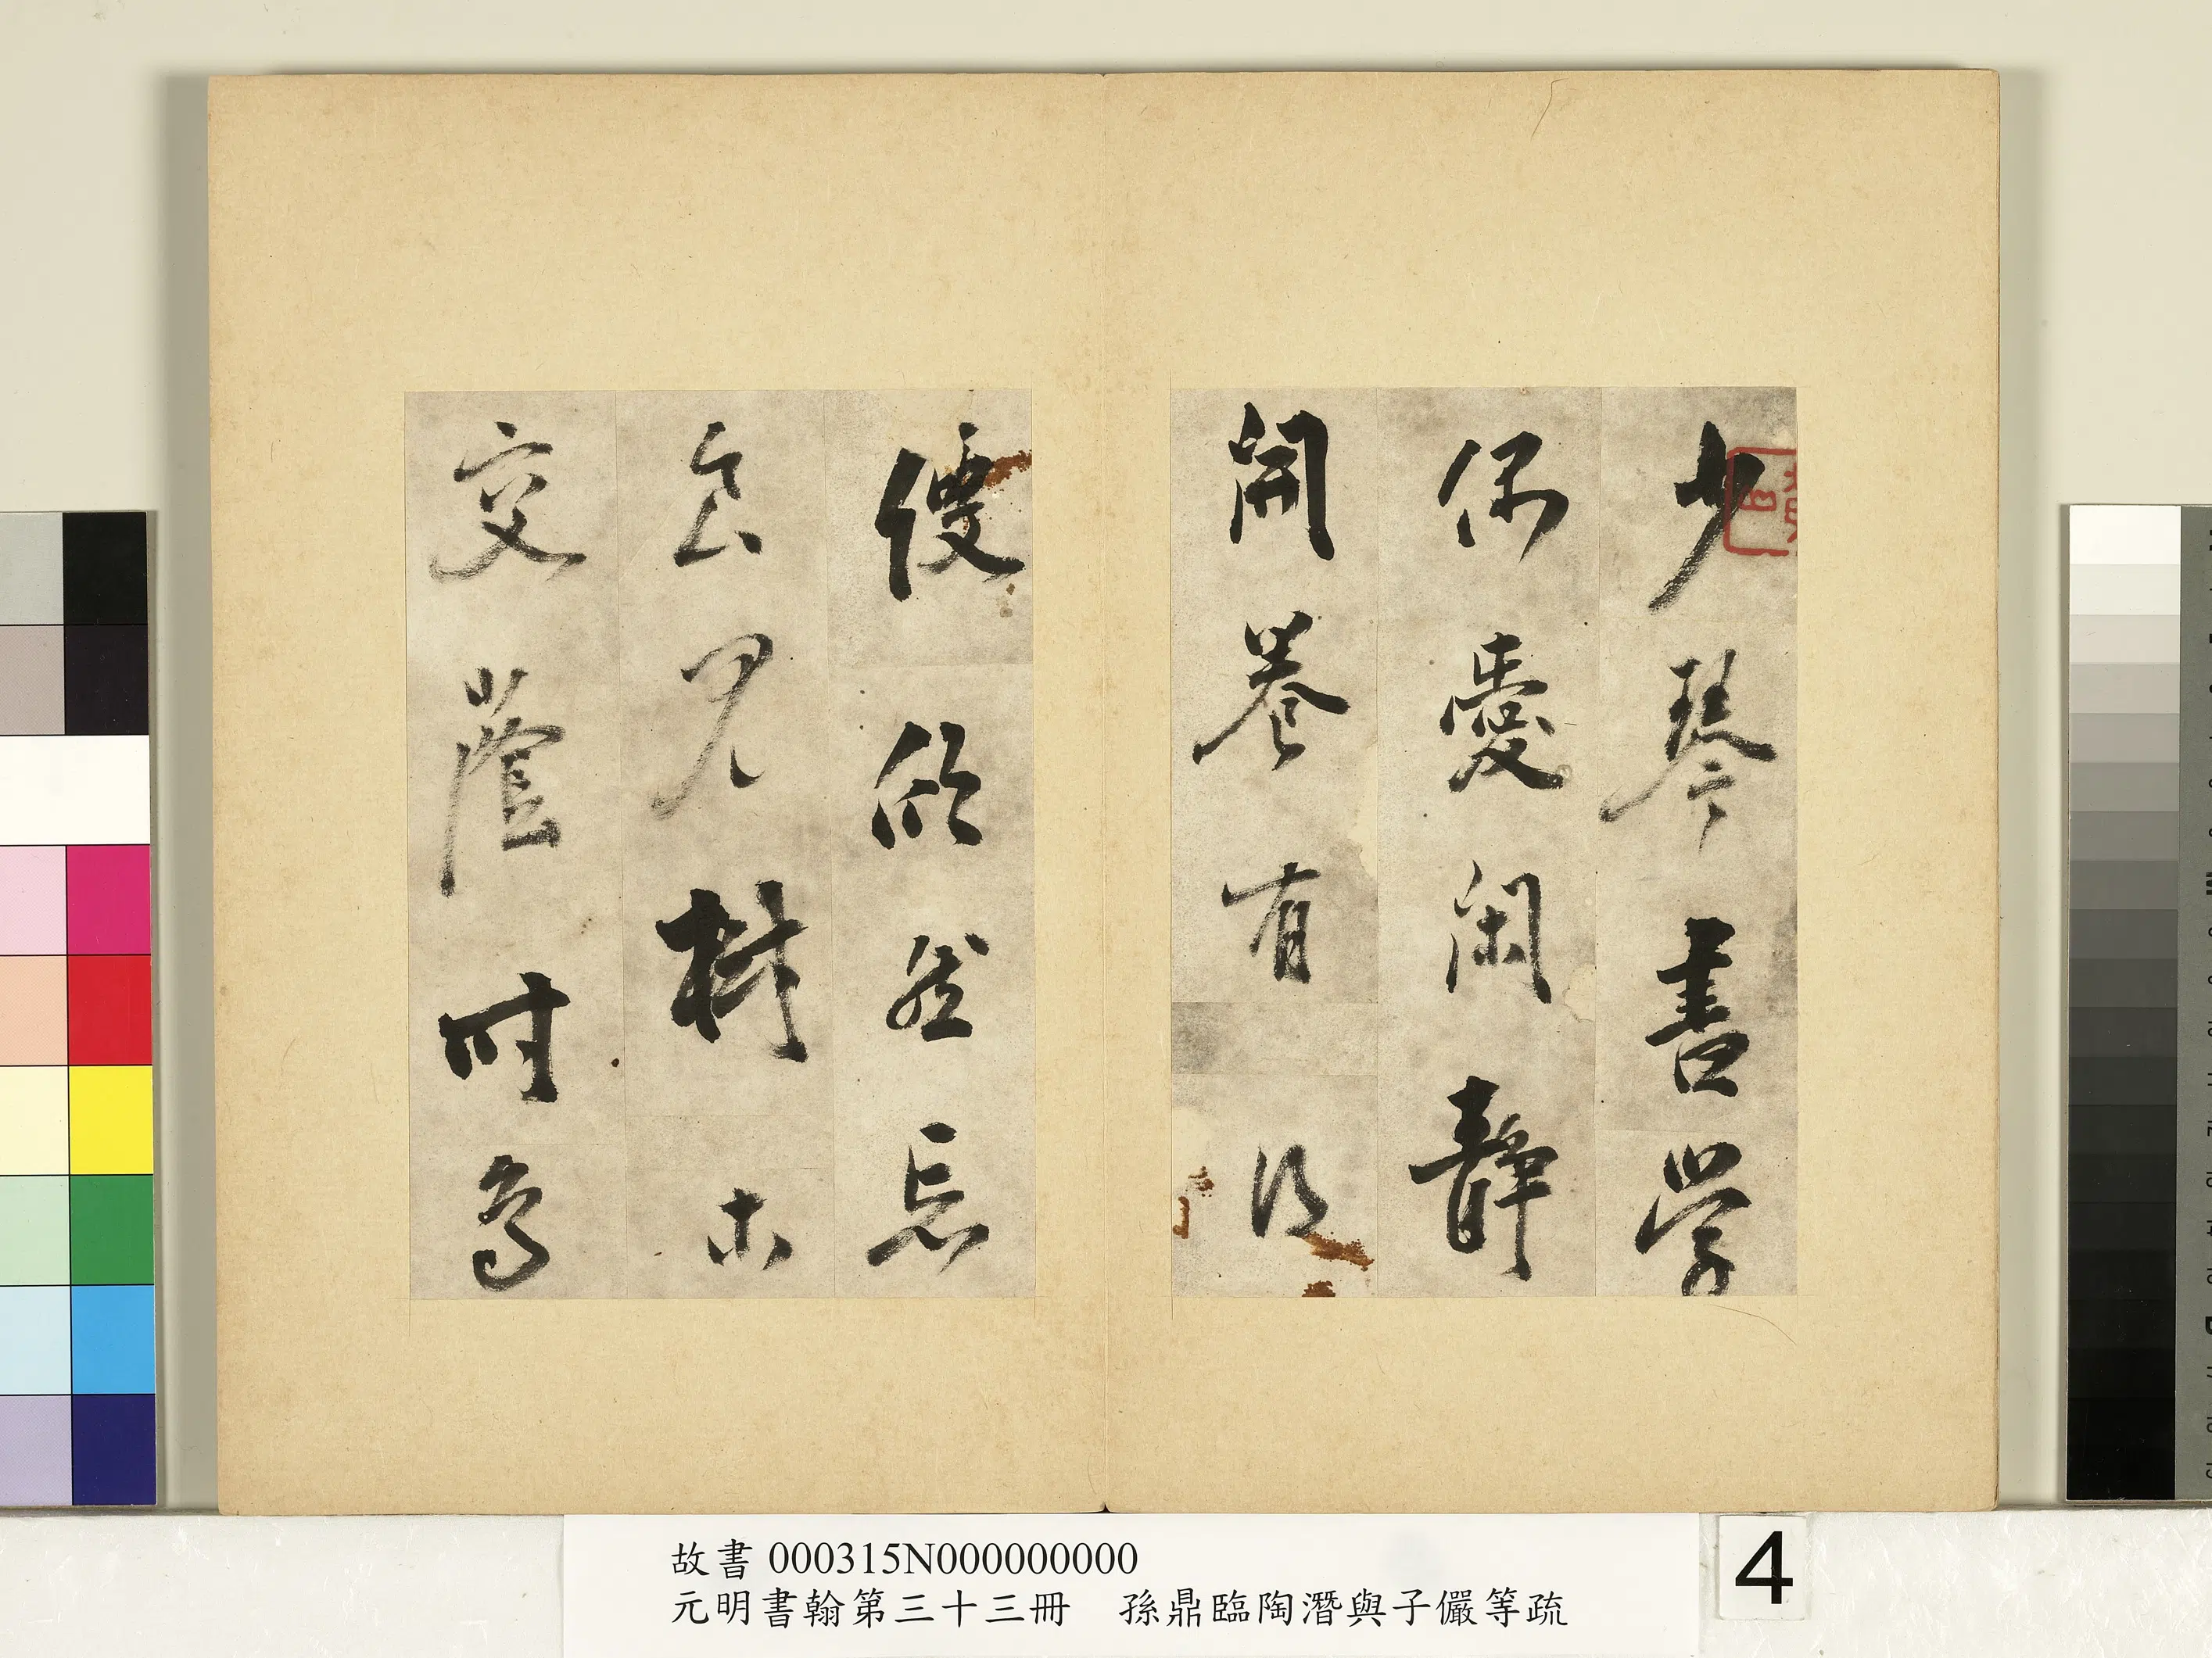 少琴書學
偶愛閑靜
開卷有得
便欣然忘
食見樹木
交蔭時鳥
故書 000315N000000000
元明書翰第三十三冊　孫鼎臨陶潛與子儼等疏
4